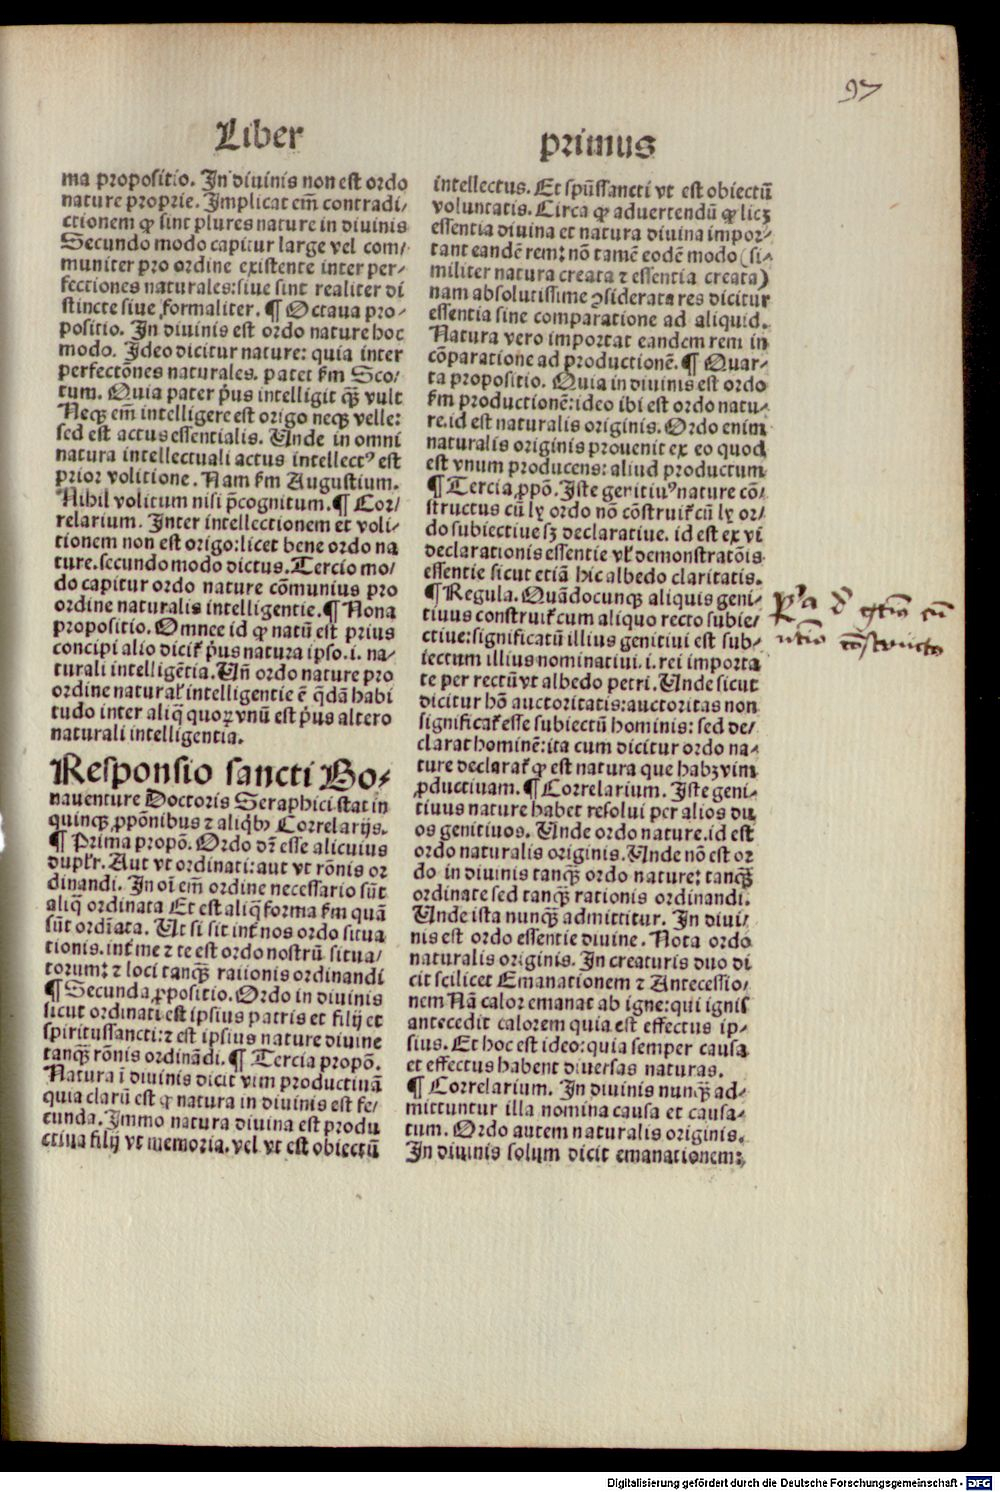 97
Liber primus
ma propositio. In diuinis non est ordo
nature proprie. Implicat em̃ contradi/
ctionem ꝙ sint plures nature in diuinis
Secundo modo capitur large vel com/
muniter pro ordine existente inter per/
fectiones naturales: siue sint realiter di
stincte siue formaliter. ¶ Octaua pro/
positio. In diuinis est ordo nature hoc
modo. Ideo dicitur nature: quia inter
perfectõnes naturales. patet ẜm Sco/
tum. Quia pater p̃us intelligit qꝫ̃ vult
Neqꝫ em̃ intelligere est origo neqꝫ velle:
sed est actus essentialis. Unde in omni
natura intellectuali actus intellectꝰ est
prior volitione. Nam ẜm Augustium.
Nihil volitum nisi p̃cognitum. ¶ Cor/
relarium. Inter intellectionem et voli/
tionem non est origo: licet bene ordo na
ture. secundo modo dictus. Tercio mo/
do capitur ordo nature cõmunius pro
ordine naturalis intelligentie. ¶ Nona
propositio. Omnee id ꝙ natũ est prius
concipi alio dicit᷑ p̃us natura ipso. i. na/
turali intelligẽtia. Uñ ordo nature pro
ordine natural᷑ intelligentie ẽ q̃dã habi
tudo inter aliq̃ quoꝝ vnũ est p̃us altero
naturali intelligentia.
Responsio sancti Bo/
nauenture Doctoris Seraphici stat in
quinqꝫ ꝓpõnibus ⁊ aliqͥbꝫ Correlarijs.
¶ Prima propõ. Ordo dr̃ esse alicuius
duplr̃. Aut vt ordinati: aut vt rõnis or
dinandi. In oĩ em̃ ordine necessario sũt
aliq̃ ordinata Et est aliq̃ forma ẜm quã
sũt ordĩata. Ut si sit int᷑ nos ordo situa
tionis. int᷑ me ⁊ te est ordo nostrũ situa/
torum: ⁊ loci tanqꝫ̃ rationis ordinandi
¶ Secunda ꝓpositio. Ordo in diuinis
sicut ordinati est ipsius patris et filij et
spiritussancti: ⁊ est ipsius nature diuine
tanqꝫ̃ rõnis ordinãdi. ¶ Tercia propõ.
Natura ĩ diuinis dicit vim productiuã
quia clarũ est ꝙ natura in diuinis est fe/
cunda. Immo natura diuina est produ
ctiua filij vt memoria. vel vt est obiectũ
intellectus. Et spũssancti vt est obiectũ
voluntatis. Circa ꝙ aduertendũ ꝙ licꝫ
essentia diuina et natura diuina impor/
tant eandẽ rem: nõ tamẽ eodẽ modo (si/
militer natura creata ⁊ essentia creata)
nam absolutissime ꝯsiderata res dicitur
essentia sine comparatione ad aliquid.
Natura vero importat eandem rem in
cõparatione ad productionẽ. ¶ Quar/
ta propositio. Quia in diuinis est ordo
ẜm productionẽ: ideo ibi est ordo natu/
re. id est naturalis originis. Ordo enim
naturalis originis prouenit ex eo quod
est vnum producens: aliud productum
¶ Tercia ꝓpõ. Iste genitiuꝰ nature cõ/
structus cũ ly ordo nõ cõstruit᷑ cũ ly or/
do subiectiue sꝫ declaratiue. id est ex vi
declarationis essentie vl᷑ demonstratõis
essentie sicut etiã hic albedo claritatis.
¶ Regula. Quãdocunqꝫ aliquis geni/
tiuus construit᷑ cum aliquo recto subie/
ctiue: significatũ illius genitiui est sub/
iectum illius nominatiui. i. rei importa
te per rectũ vt albedo petri. Unde sicut
dicitur hõ auctoritatis: auctoritas non
significat᷑ esse subiectũ hominis: sed de/
clarat hominẽ: ita cum dicitur ordo na/
ture declarat᷑ ꝙ est natura que habꝫ vim
ꝓductiuam. ¶ Correlarium. Iste geni/
tiuus nature habet resolui per alios du
os genitiuos. Unde ordo nature. id est
ordo naturalis originis. Unde nõ est or
do in diuinis tanqꝫ̃ ordo nature: tanqꝫ̃
ordinate sed tanqꝫ̃ rationis ordinandi.
Unde ista nunqꝫ̃ admittitur. In diui/
nis est ordo essentie diuine. Nota ordo
naturalis originis. In creaturis duo di
cit scilicet Emanationem ⁊ Antecessio/
nem Nã calor emanat ab igne: qui ignis
antecedit calorem quia est effectus ip/
sius. Et hoc est ideo: quia semper causa
et effectus habent diuersas naturas.
¶ Correlarium. In diuinis nunqꝫ̃ ad/
mittuntur illa nomina causa et causa/
tum. Ordo autem naturalis originis.
In diuinis solum dicit emanationem:
Digitalisierung gefördert durch die Deutsche Forschungsgemeinschaft - DFG